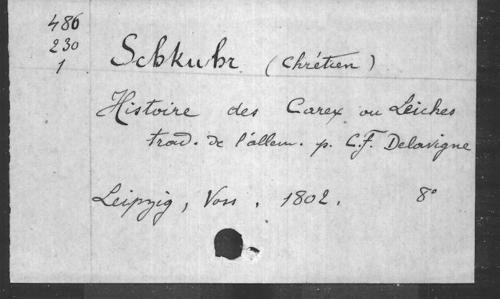 486
230
1
Schkuhr (Chrétien)
Histoire des Carex ou Leiches
trad. de l'allem. p. C.F. Delavigne
Leipzig, Voss. 1802. 8°